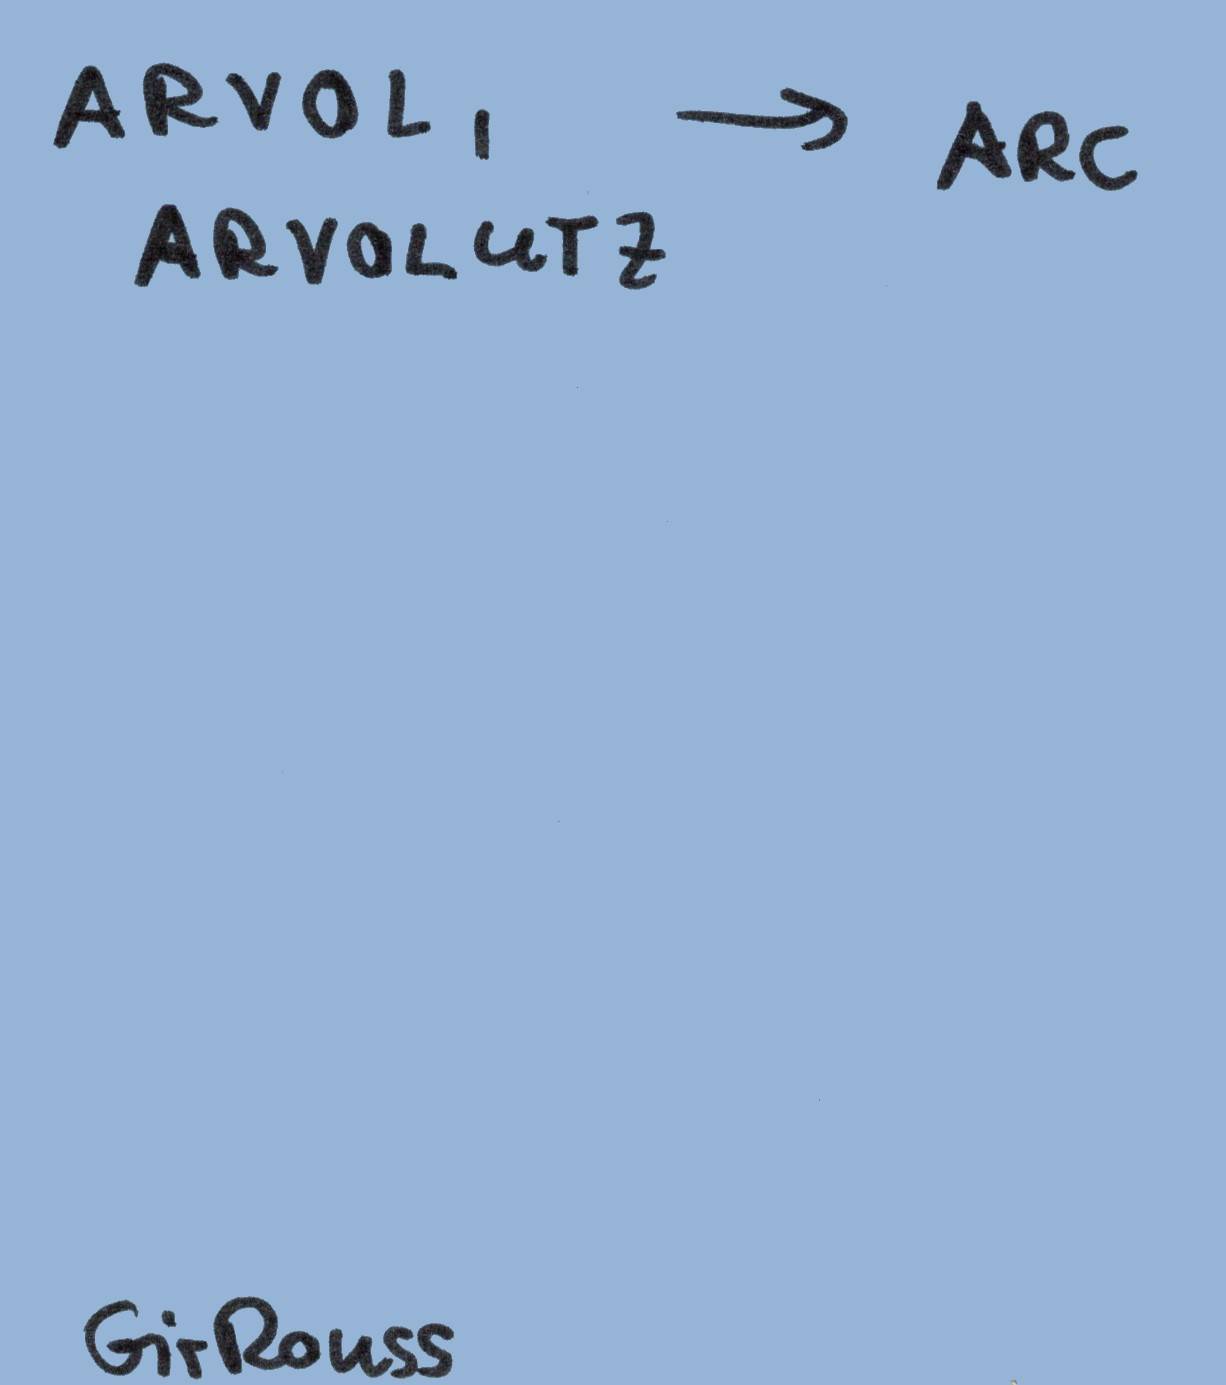 ARVOL, → ARC
ARVOLUTZ
GirRouss